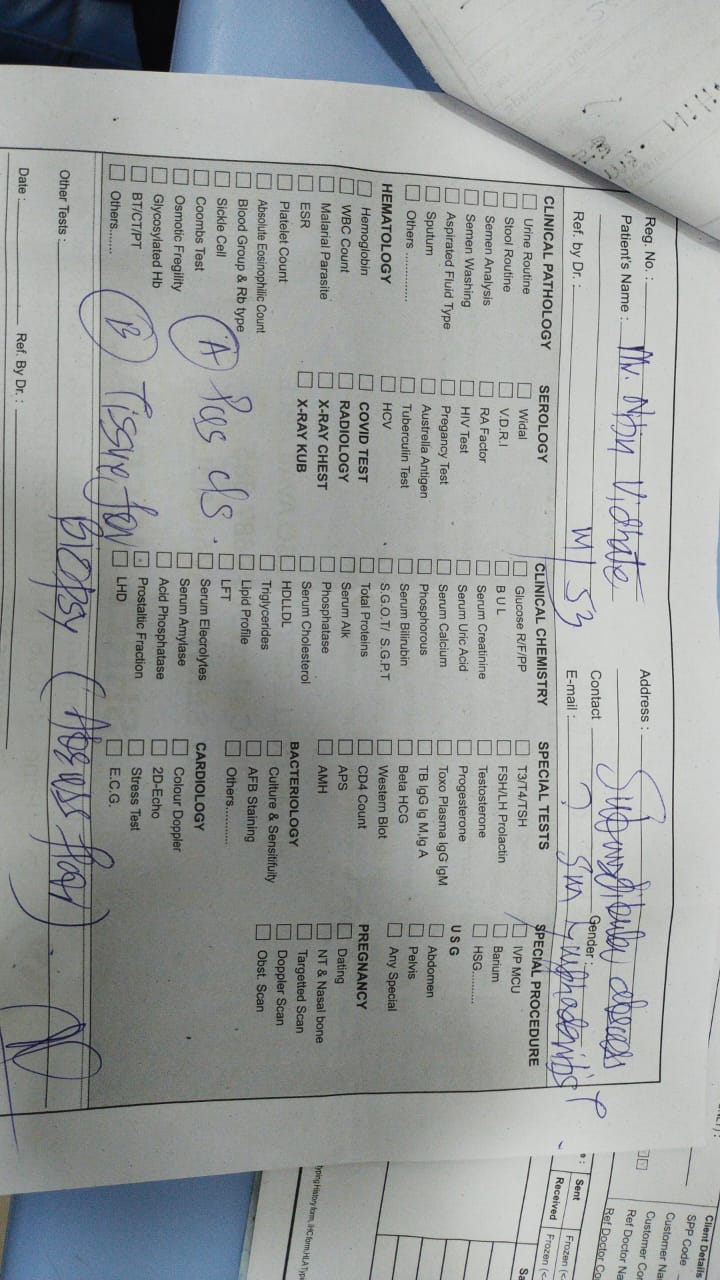 Reg. No. :
Address :
Patient's Name : Mr. Nitin Vidhate
Submandibular abscess
Contact
Gender :
Ref. by Dr. :
M/53
E-mail :
? Sm Lymphadenitis
CLINICAL PATHOLOGY
Urine Routine
Stool Routine
Semen Analysis
Semen Washing
Aspirated Fluid Type
Sputum
Others ...............
HEMATOLOGY
Hemoglobin
WBC Count
Malarial Parasite
ESR
Platelet Count
Absolute Eosinophilic Count
Blood Group & Rb type
Sickle Cell
Coombs Test
Osmotic Fregility
Glycosylated Hb
BT/CT/PT
Others.......
SEROLOGY
Widal
V.D.R.I
RA Factor
HIV Test
Pregancy Test
Austrella Antigen
Tuberculin Test
HCV
COVID TEST
RADIOLOGY
X-RAY CHEST
X-RAY KUB
CLINICAL CHEMISTRY
Glucose R/F/PP
B U L
Serum Creatinine
Serum Uric Acid
Serum Calcium
Phosphorous
Serum Bilirubin
S.G.O.T/ S.G.P.T
Total Proteins
Serum Alk
Phosphatase
Serum Cholesterol
HDLLDL
Triglycerides
Lipid Profile
LFT
Serum Elecrolytes
Serum Amylase
Acid Phosphatase
Prostaltic Fraction
LHD
SPECIAL TESTS
T3/T4/TSH
FSH/LH Prolactin
Testosterone
Progesterone
Toxo Plasma IgG IgM
TB IgG Ig M,Ig A
Beta HCG
Western Blot
CD4 Count
APS
AMH
BACTERIOLOGY
Culture & Sensitifuity
AFB Staining
Others...........
CARDIOLOGY
Colour Doppler
2D-Echo
Stress Test
E.C.G.
SPECIAL PROCEDURE
IVP MCU
Barium
HSG..........
U S G
Abdomen
Pelvis
Any Special
PREGNANCY
Dating
NT & Nasal bone
Targetted Scan
Doppler Scan
Obst. Scan
(A) Pus c/s.
(B) Tissue for
Biopsy (Abscess floor).
Other Tests :
Date :
Ref. By Dr. :
Client Details
SPP Code
Customer Na
Customer Co
Ref Doctor Na
Ref Doctor Co
Sent
Frozen (<
Received
Frozen (<
Sa
typing History form, IHC form, HLA Typ